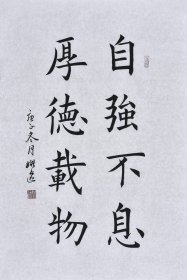 自強不息
厚德載物
庚子冬月